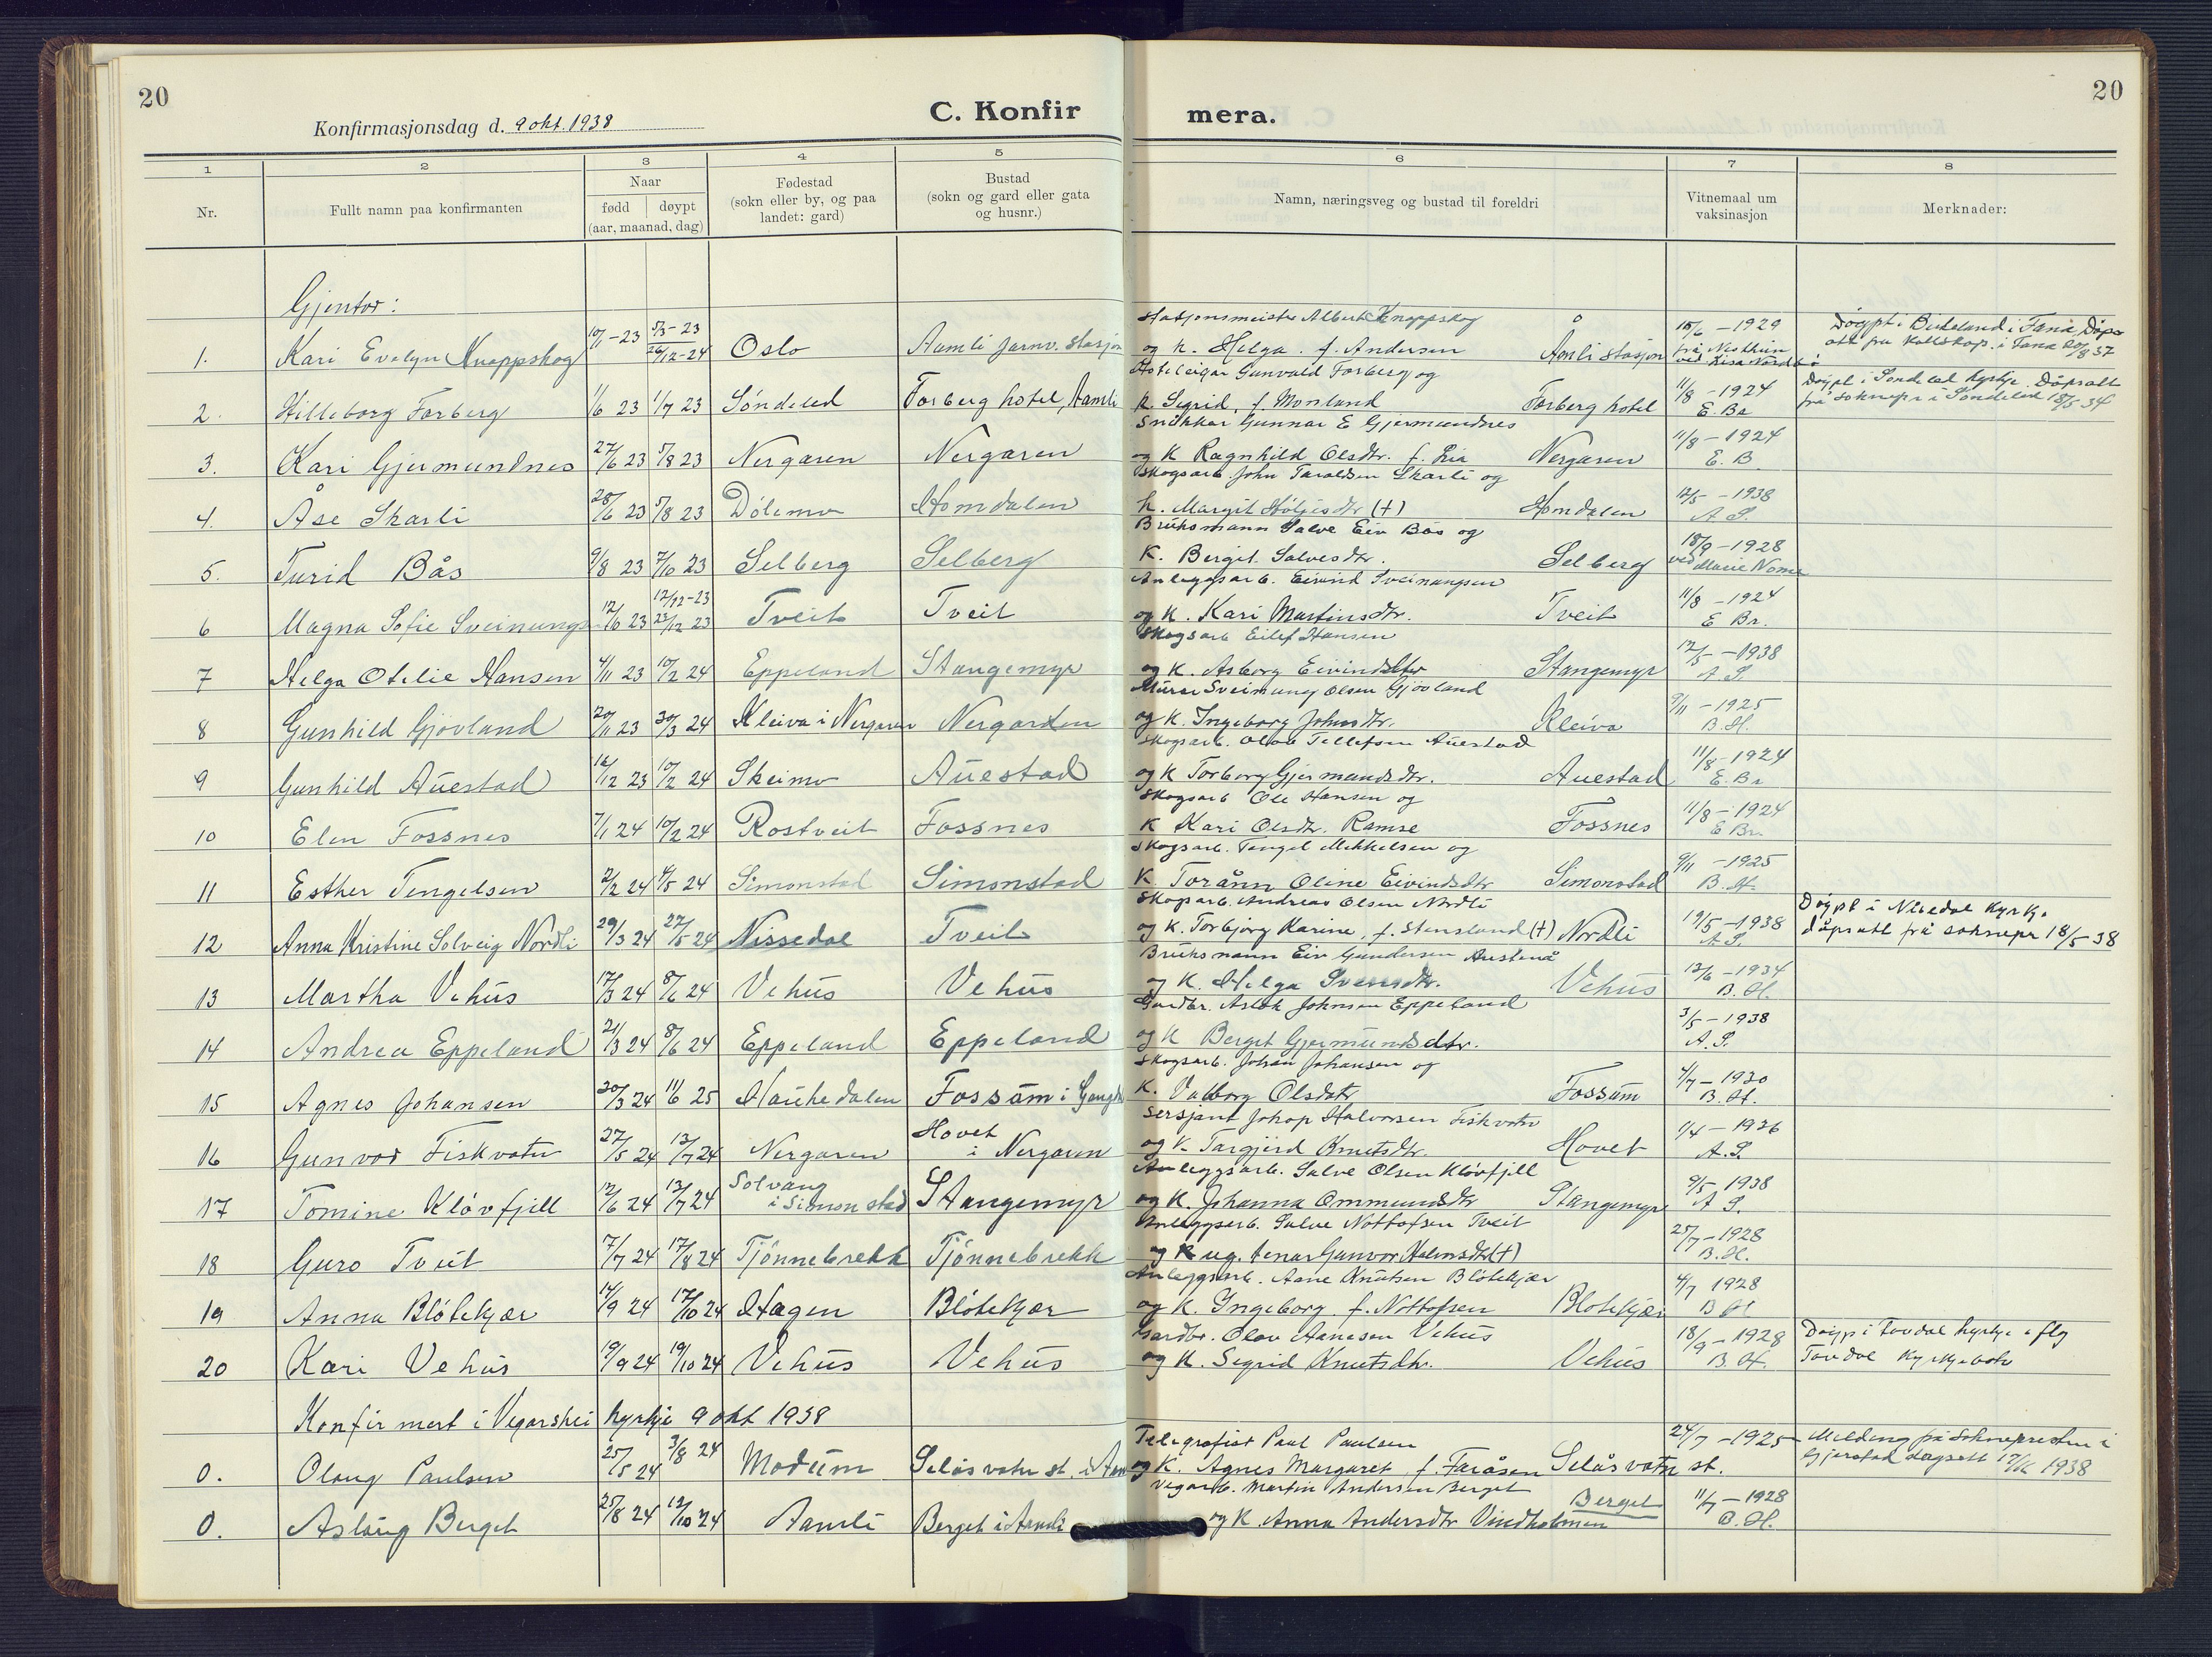 20
C. Konfirmera.
20
Konfirmasjonsdag d. 9 okt. 1938
1 2 3 4 5 6 7 8
Nr.
Fullt namn paa konfirmanten
Naar
fødd døypt
(aar, maanad, dag)
Fødestad
(sokn eller by, og paa
landet: gard)
Bustad
(sokn og gard eller gata
og husnr.)
Namn, næringsveg og bustad til foreldri
Vitnemaal um
vaksinasjon
Merknader:
Gjentor:
Stasjonsmeister Albert Knappskog
1. Kari Evelyn Knappskog 10/1-23 5/3-23 26/12-24 Oslo Aamli jarnv. stasjon og k. Helga f. Andersen Åmli stasjon 15/6-1929
Døypt i Birkeland i Fana Dåps
att fra kallskap. i Fana 20/8 37
Hoteleigar Gunvald Forberg og
2. Hilleborg Forberg 1/6 23 1/7 23 Søndeled Forberg hotel, Aamli k. Sigrid, f. Monland Forberg hotel 11/8-1924 E. Br
Døypt i Søndeled kyrkje. Dåpsatt
frå soknepr i Søndeled 18/5 34
Snikkar Gunnar E Gjermundnes
3. Kari Gjermundnes 27/6 23 5/8 23 Nergaren Nergaren og K Ragnhild Olsdtr. f. Lia Nergaren 11/8-1924 E. B
Skogsarb. John Taraldsen Skarli og
4. Åse Skarli 28/6 23 5/8 23 Dölemo Homdalen k. Margit Höljesdtr (+) Homdalen 12/5-1938 A S.
Bruksmann Salve Eiv Bås og
5. Turid Bås 9/8 23 7/10 23 Selberg Selberg K. Bergit Salvesdtr. Selberg 18/9-1928 ved Marie Nome
Anleggsarb. Eivind Sveinungsen
6 Magna Sofie Sveinungs 12/6 23 12/12-23 23/12 23 Tveit Tveit og K. Kari Martinsdtr. Tveit 11/8-1924 E Br.
Skogsarb Eilef Hansen
7 Helga Otelie Hansen 4/11 23 10/2 24 Eppeland Stangemyr og K. Asborg Eivindsdtr Stangemyr 12/5-1938 A S.
Murar Sveinung Olsen Gjövland
8 Gunhild Gjövland 20/11 23 30/3 24 Kleiva i Nergaren Nergarden og K. Ingeborg Johnsdtr. Kleiva 9/11-1925 B. H.
Skogsarb. Olav Tellefsen Auestad
9 Gunhild Auestad 16/12 23 10/2 24 Skeimo Auestad og K Torborg Gjermundsdtr. Auestad 11/8-1924 E. Br
Skogsarb Ole Hansen og
10 Elen Fossnes 7/1 24 10/2 24 Rostveit Fossnes K Kari Olsdtr. Ramse Fossnes 11/8-1924 E Br.
Skogsarb. Tengel Mikkelsen og
11 Esther Tengelsen 2/2 24 4/5 24 Simonstad Simonstad K. Torånn Oline Eivindsdtr Simonstad 9/11-1925 B. H.
Skogsarb. Andreas Olsen Nordli
12 Anna Kristine Solveig Nordli 29/3 24 27/5 24 Nissedal Tveit og K. Torbjörg Karine, f. Stensland (+) Nordli 19/5-1938 A S.
Døypt i Nissedal kyrkj.
dåpsatt frå soknepr 18/5-38
Bruksmann Eiv Gundersen Austenå
13 Martha Vehus 17/3 24 8/6 24 Vehus Vehus og K. Helga Svensdtr. Vehus 12/6-1934 B. H.
Gardbr. Aslak Johnsen Eppeland
14 Andrea Eppeland 21/3 24 8/6 24 Eppeland Eppeland og K Berget Gjermundsdtr. 3/5-1938 A. S.
Skogsarb. Johan Johansen og
15 Agnes Johansen 20/3 24 11/6 25 Haukedalen Fossum i K. Valborg Olsdtr Fossum 4/7-1930 B. H.
Sersjant Johan Halvorsen Fiskvatn
16 Gunvor Fiskvatn 27/5 24 13/7 24 Nergaren Hovet i Nergaren og K. Targjerd Knutsdtr. Hovet 1/4-1936 A. S.
Anleggsarb. Salve Olsen Klövfjell
17 Tomine Klövfjell 12/6 24 13/7 24 Solvang i Simonstad Stangemyr og K. Johanna Ommundsdtr Stangemyr 9/5-1938 A S.
Anleggsarb. Salve Nottofsen Tveit
18 Guro Tveit 7/7 24 17/8 24 Tjönnebrekk Tjönnebrekk og K ug. tenar Gunvor Halvorsdtr (+) 25/7-1928 B. H.
Anleggsarb. Aane Knutsen Blötekjær
19 Anna Blötekjær 14/9 24 17/10 24 Hagen Blötekjær og K. Ingeborg f. Nottofsen Blotekjær 4/7 1928 B H
Gardbr. Olav Aanesen Vehus
20 Kari Vehus 19/9 24 19/10 24 Vehus Vehus og K. Sigrid Knutsdtr. Vehus 18/9-1928 B. H.
Døyp i Tovdal kyrkje flg
Tovdal kyrkjebok
Konfirmert i Vegarshei kyrkje 9 okt 1938
Telegrafist Paul Paulsen
0. Olaug Paulsen 25/5 24 3/8 24 Modum Selåsvatn st. i Aam og K. Agnes Margaret, f. Faråsen Selåsvatn st. 24/7-1925
Melding frå soknepresten i
Gjerstad dagsett 17/10 1938
Vegarb. Martin Andersen Berget
0. Aslaug Berget 25/8 24 12/10 24 Aamli Berget i Aamli og K. Anna Andersdtr Vindholmen Berget 11/7-1928 B. H.